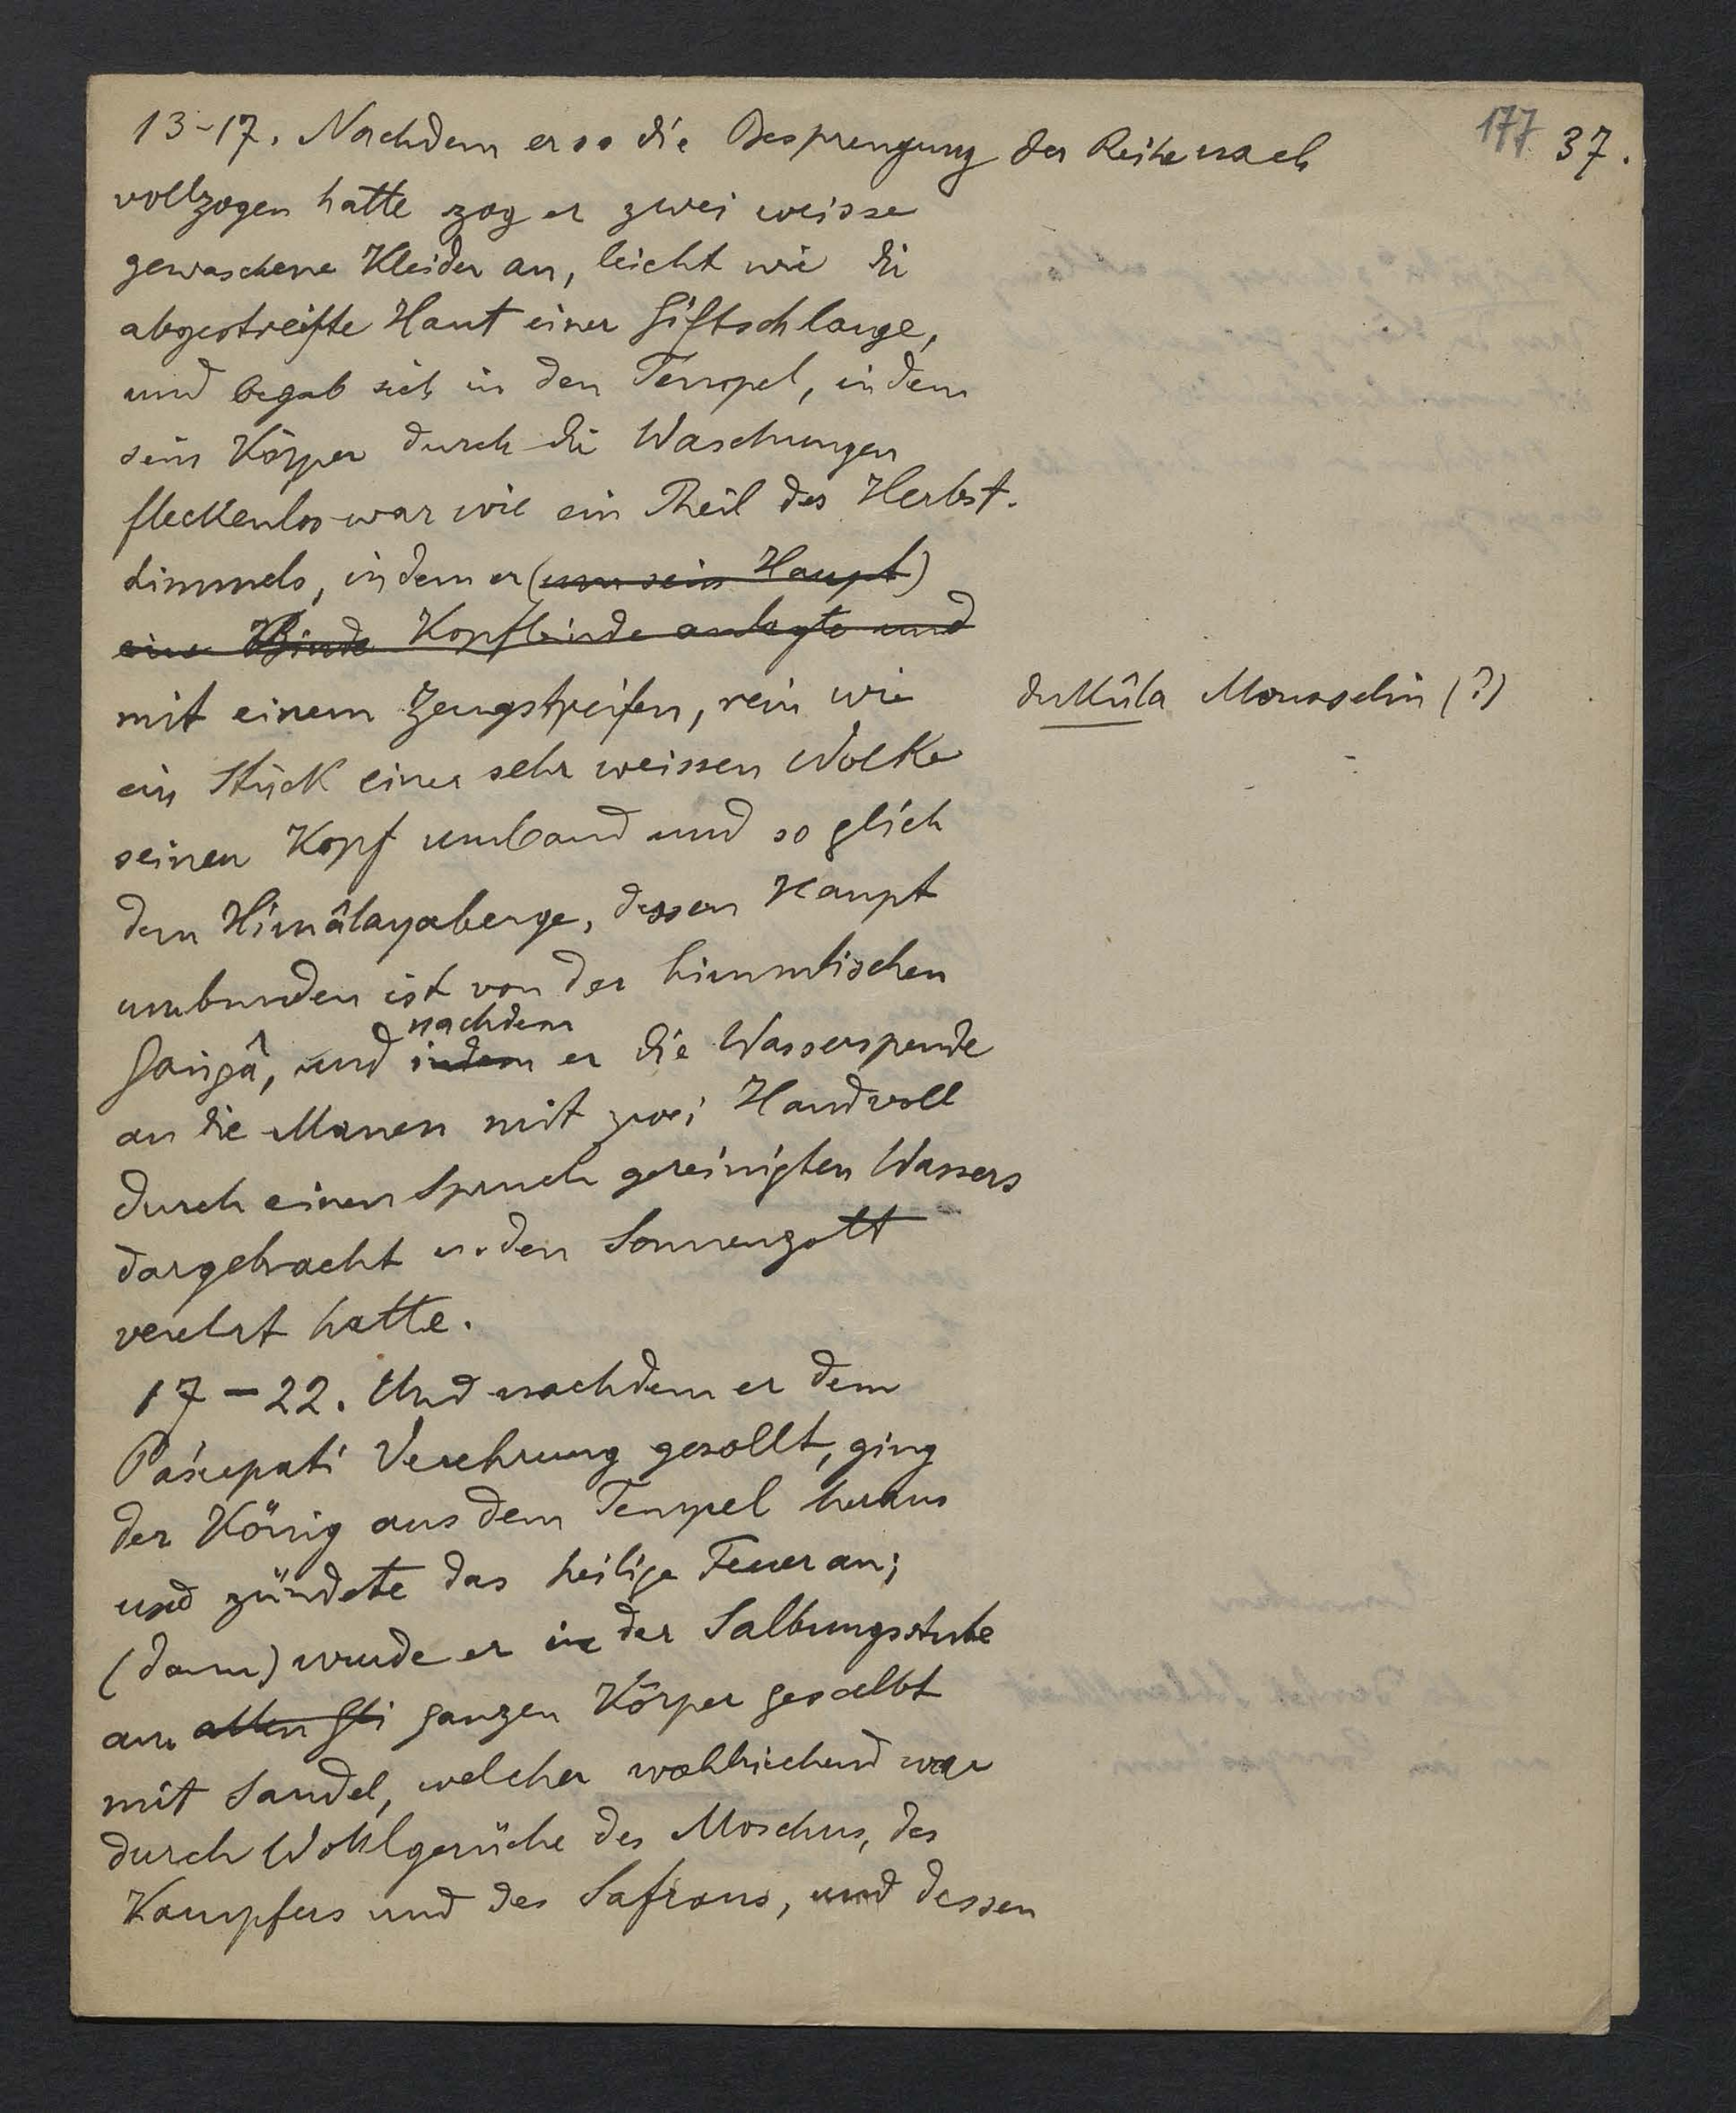 177 37.
13-17. Nachdem er so die Besprengung der Reihe nach
vollzogen hatte zog er zwei weisse
gewaschene Kleider an, leicht wie die
abgestreifte Haut einer Giftschlange,
und begab sich in den Tempel, indem
sein Körper durch die Waschungen
fleckenlos war wie ein Theil des Herbst-
himmels, indem er (um sein Haupt)
eine Binde Kopfbinde anlegte und
mit einem Zeugstreifen, rein wie
dukûla Mousselin (?)
ein Stück einer sehr weissen Wolke
seinen Kopf umband und so glich
dem Himâlayaberge, dessen Haupt
umbunden ist von der himmlischen
Gangâ, und indem nachdem er die Wasserspende
an die Manen mit zwei Handvoll
durch einen Spruch gereinigten Wassers
dargebracht u. den Sonnengott
verehrt hatte.
17-22. Und nachdem er dem
Paśupati Verehrung gezollt, ging
der König aus dem Tempel heraus
und zündete das heilige Feuer an;
(dann) wurde er in der Salbungsstube
am allen Gli ganzen Körper gesalbt
mit Sandel, welcher wohlriechend war
durch Wohlgerüche des Moschus, des
Kampfers und des Safrans, und dessen